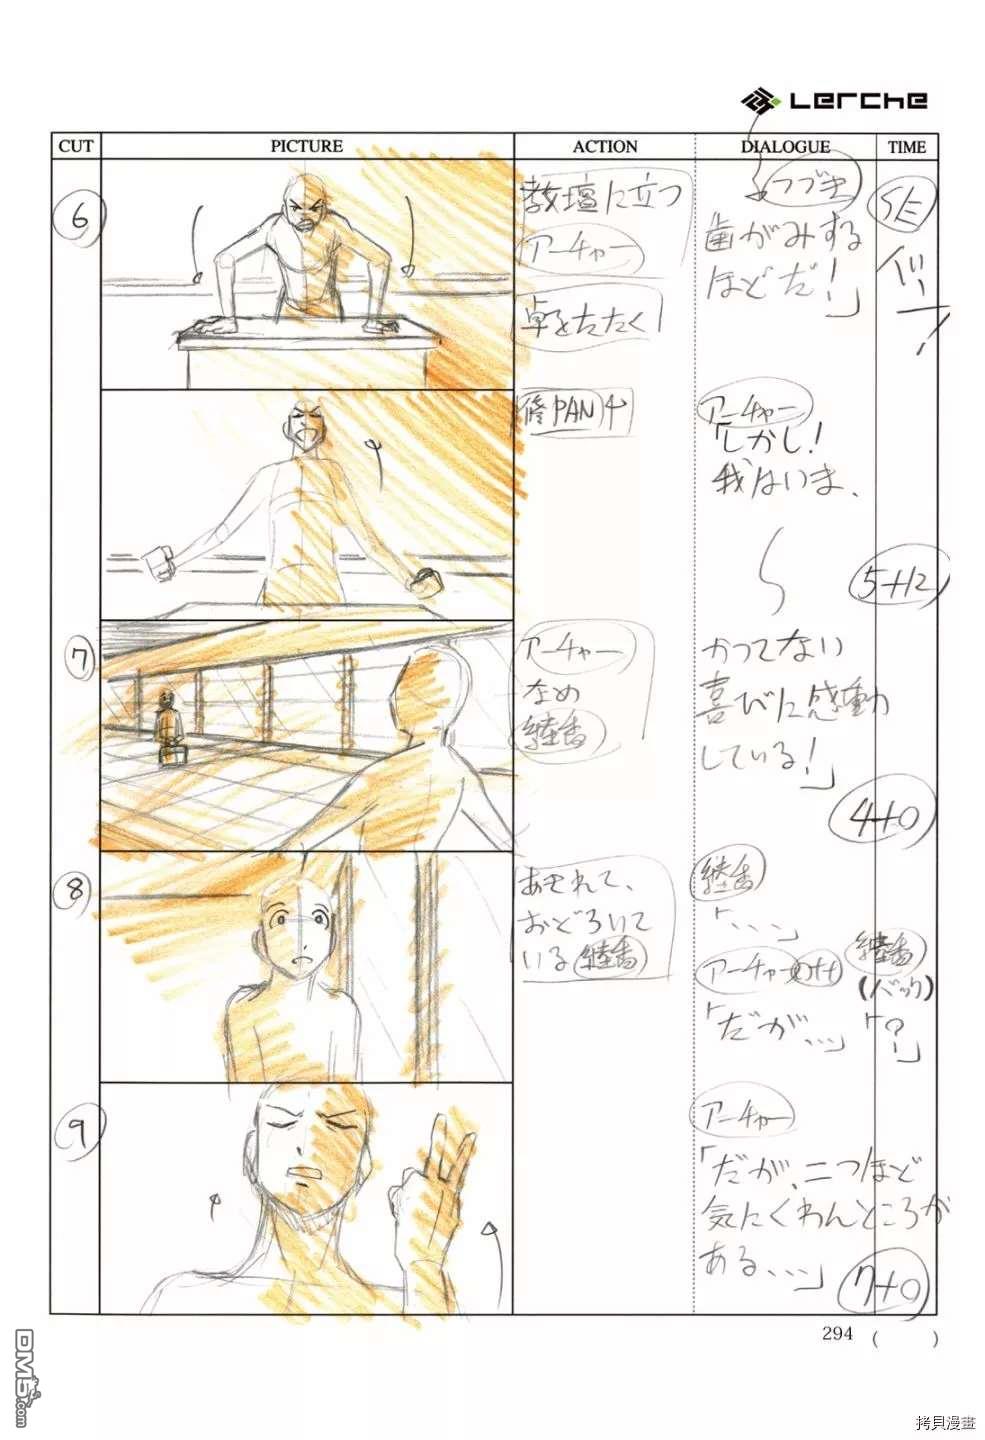 Lerche
CUT PICTURE ACTION DIALOGUE TIME
6
教壇に立つ
アーチャー
卓をたたく
つづき
歯がみする
ほどだ!」
SE
バンッ!
PAN
アーチャー
「しかし!
我はいま、
5+12
7
アーチャー
なめ
継香
かつてない
喜びに感動
している!」
4+0
8
あきれて、
おどろいて
いる継香
継香
「、、、」
アーチャーOff
「だが、、、」
継香
(バック)
「?」
9
アーチャー
「だが、二つほど
気にくわんところが
ある、、、」
7+0
294 ( )
DM5.com
拷貝漫畫